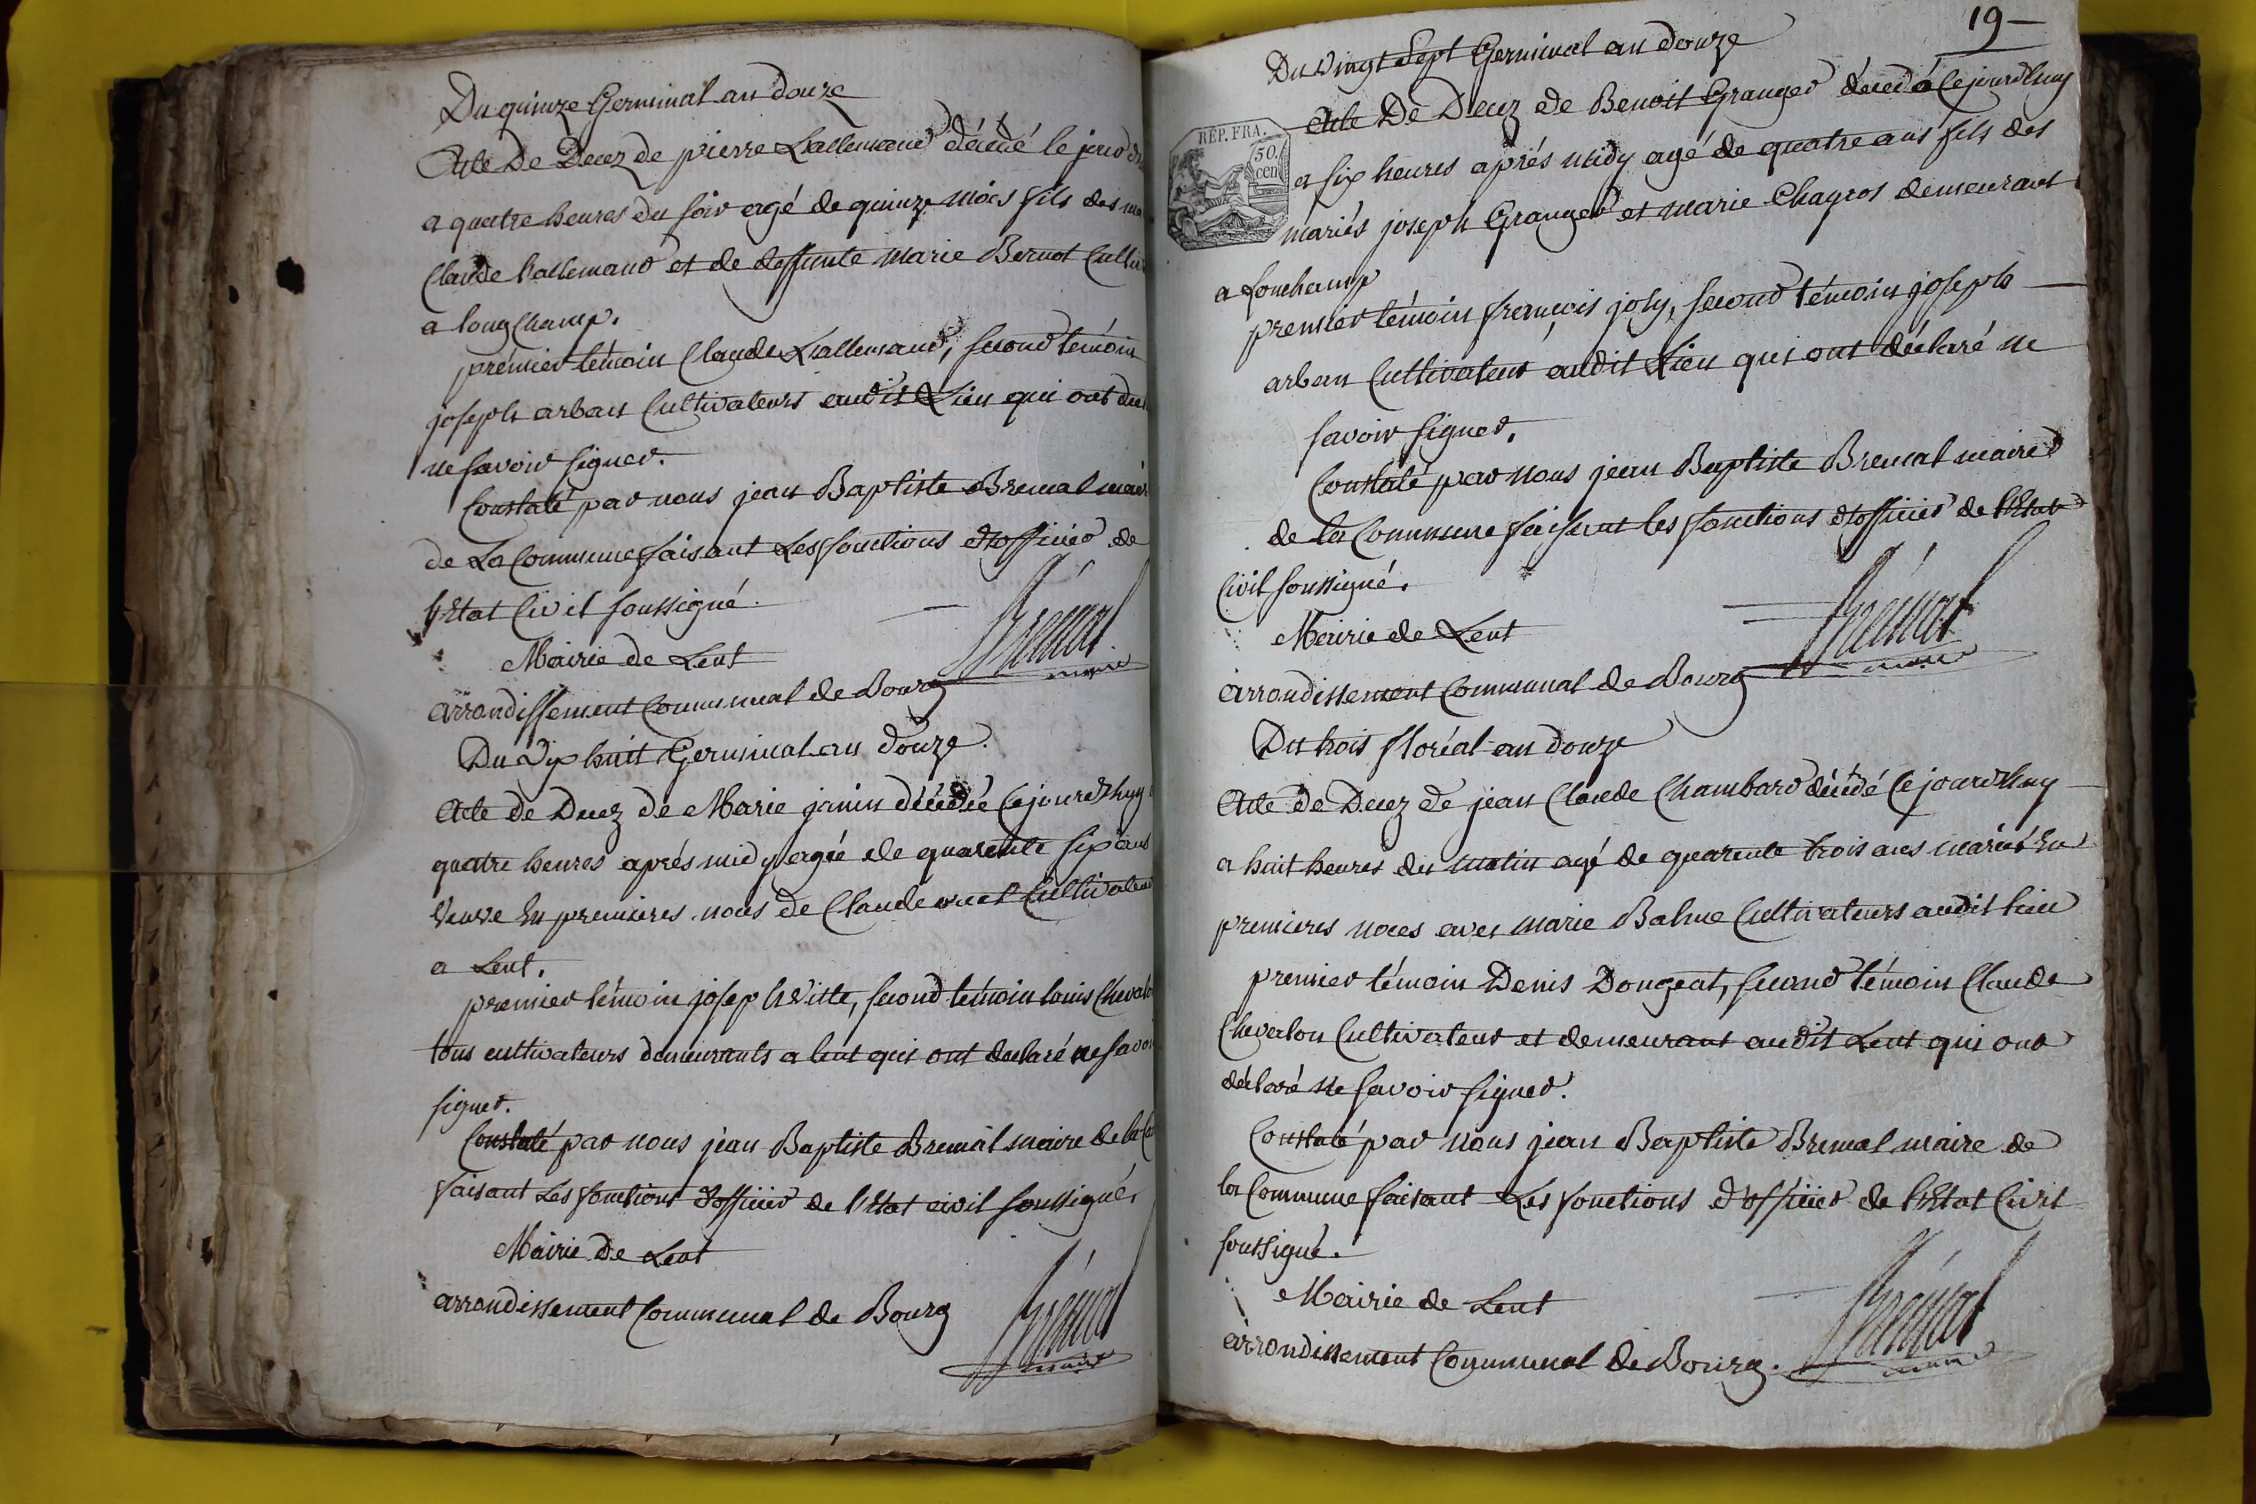 Du quinze Germinal an douze
Acte De Decez de pierre Lallemand décédé le jour
a quatre heures du soir agé de quinze mois fils des
Claude Lallemand et de deffunte Marie Bernot
a long Champ.
prémier témoin Claude Lallemand, second témoin
joseph arban Cultivateurs audit Lieu qui ont
ne savoir signer.
Constaté par nous jean Baptiste Bremal
de La Commune faisant Les fonctions d'officier de
l'Etat Civil soussigné.
Mairie de Lent
arrondissement Communal de Bourg
Brémal
maire
Du Dix huit Germinal an douze.
Acte de Decez de Marie janin décédée Cejourd'huy
quatre heures aprés midy agée de quarente six ans
Veuve En premieres noces de Claude Cultivateur
a Lent.
premier témoin joseph Vitte, second témoin louis
tous cultivateurs demeurants a lent qui ont declaré ne
signer.
Constaté par nous jean Baptiste Bremal maire de la
faisant Les fonctions d'officier de l'Etat civil soussigné.
Mairie de Lent
arrondissement Communal de Bourg
Brémal
maire
19
Du Vingt Sept Germinal an douze
Acte De Decez de Benoit Granger décedé Cejourd'huy
REP. FRA.
50
cen
a six heures aprés midy agé de quatre ans fils des
mariés joseph Granger et marie Chagros demeurant
a Lonchamp
premier témoin françois joly, second témoin joseph
arban Cultivateur audit Lieu qui ont déclaré ne
savoir signer.
Constaté par nous jean Baptiste Bremal maire
de la Commune faisant les fonctions d'officier de l'Etat
Civil soussigné.
Mairie de Lent
arrondissement Communal de Bourg
Brémal
maire
Du trois floréal an douze
Acte de Decez de jean Claude Chambard décédé Cejourd'huy
a huit heures du matin agé de quarente trois ans marié En
premieres noces avec marie Bahue Cultivateurs audit lieu
premier témoin Denis Dongeat, second témoin Claude
Chevalon Cultivateur et demeurant audit Lent qui ont
déclaré ne savoir signer.
Constaté par nous jean Baptiste Bremal maire de
la Commune faisant Les fonctions d'officier de l'Etat Civil
soussigné.
Mairie de Lent
arrondissement Communal de Bourg.
Brémal
maire